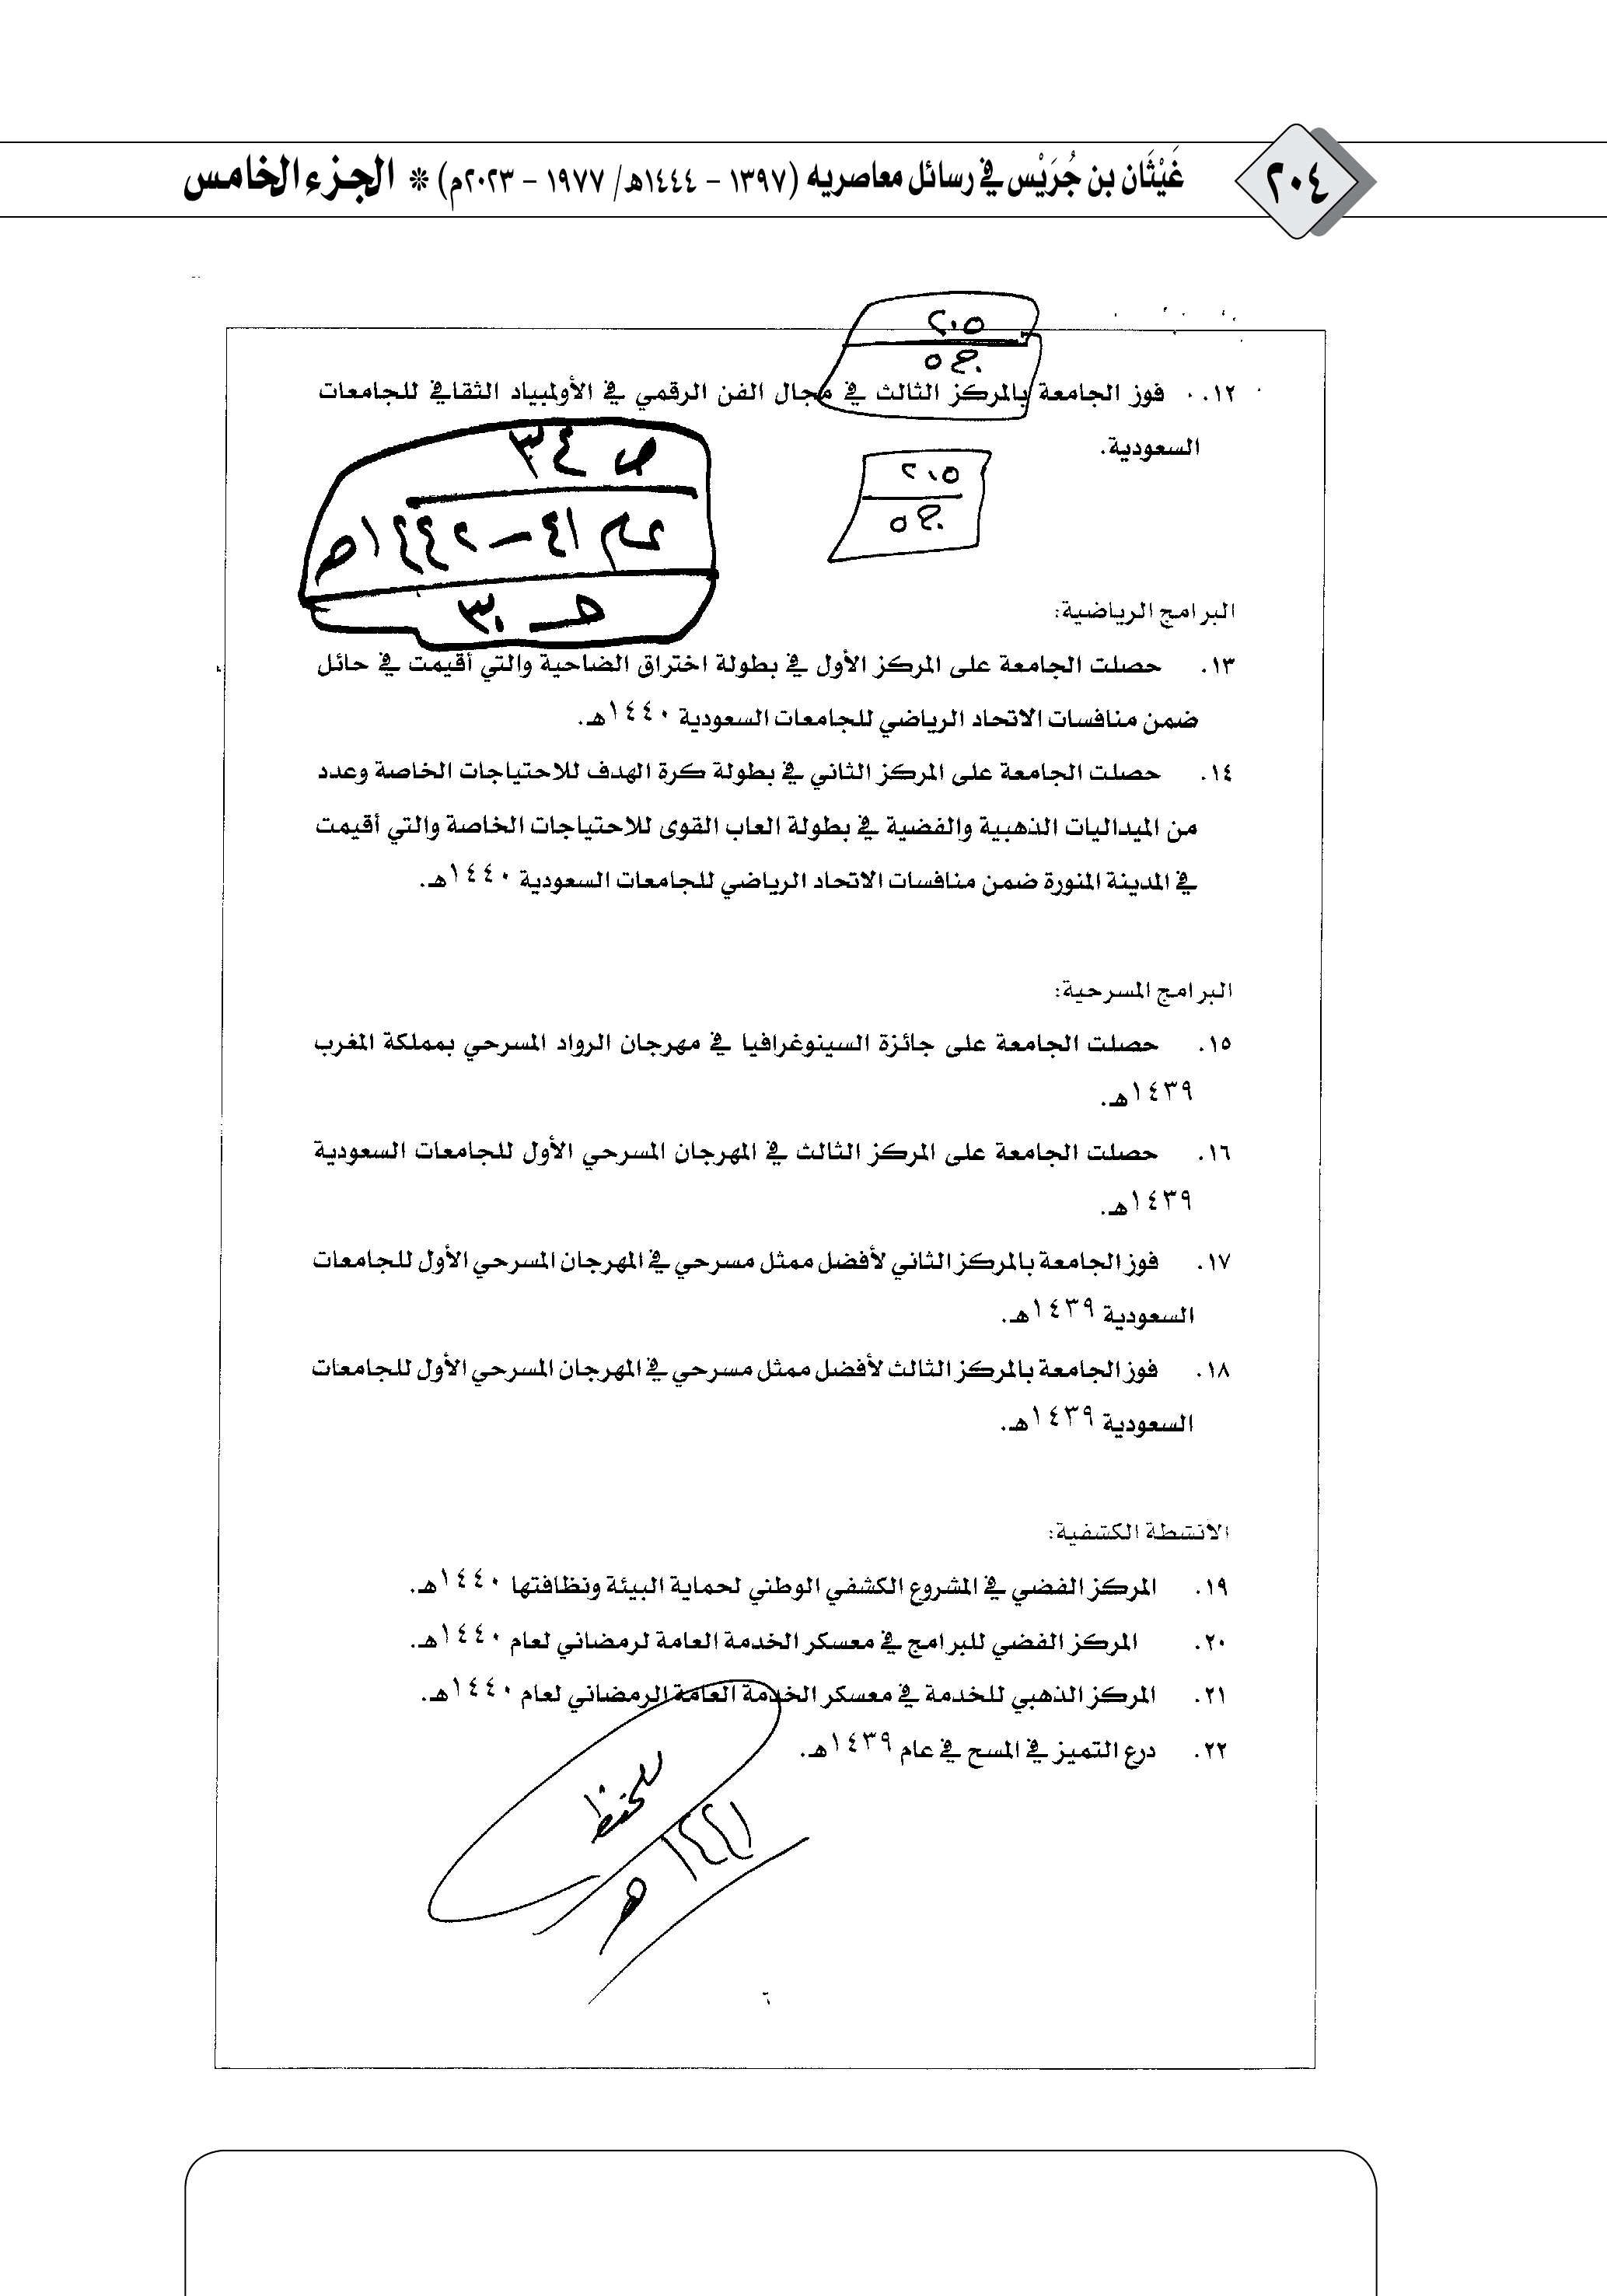 ٢٠٤
غَيْثَان بن جُرَيْس في رسائل معاصريه (١٣٩٧ - ١٤٤٤هـ/ ١٩٧٧ - ٢٠٢٣م) * الجزء الخامس
٢٠٥
ج٥
١٢. فوز الجامعة بالمركز الثالث في مجال الفن الرقمي في الأولمبياد الثقافي للجامعات
السعودية.
ص ٣٤
٤١-١٤٤٢هـ
٣٠
٢٠٥
ج٥
البرامج الرياضية:
١٣. حصلت الجامعة على المركز الأول في بطولة اختراق الضاحية والتي أقيمت في حائل
ضمن منافسات الاتحاد الرياضي للجامعات السعودية ١٤٤٠هـ.
١٤. حصلت الجامعة على المركز الثاني في بطولة كرة الهدف للاحتياجات الخاصة وعدد
من الميداليات الذهبية والفضية في بطولة العاب القوى للاحتياجات الخاصة والتي أقيمت
في المدينة المنورة ضمن منافسات الاتحاد الرياضي للجامعات السعودية ١٤٤٠هـ.
البرامج المسرحية:
١٥. حصلت الجامعة على جائزة السينوغرافيا في مهرجان الرواد المسرحي بمملكة المغرب
١٤٣٩هـ.
١٦. حصلت الجامعة على المركز الثالث في المهرجان المسرحي الأول للجامعات السعودية
١٤٣٩هـ.
١٧. فوز الجامعة بالمركز الثاني لأفضل ممثل مسرحي في المهرجان المسرحي الأول للجامعات
السعودية ١٤٣٩هـ.
١٨. فوز الجامعة بالمركز الثالث لأفضل ممثل مسرحي في المهرجان المسرحي الأول للجامعات
السعودية ١٤٣٩هـ.
الأنشطة الكشفية:
١٩. المركز الفضي في المشروع الكشفي الوطني لحماية البيئة ونظافتها ١٤٤٠هـ.
٢٠. المركز الفضي للبرامج في معسكر الخدمة العامة لرمضاني لعام ١٤٤٠هـ.
٢١. المركز الذهبي للخدمة في معسكر الخدمة العامة الرمضاني لعام ١٤٤٠هـ.
٢٢. درع التميز في المسح في عام ١٤٣٩هـ.
للحفظ
١٤٤١هـ
٦